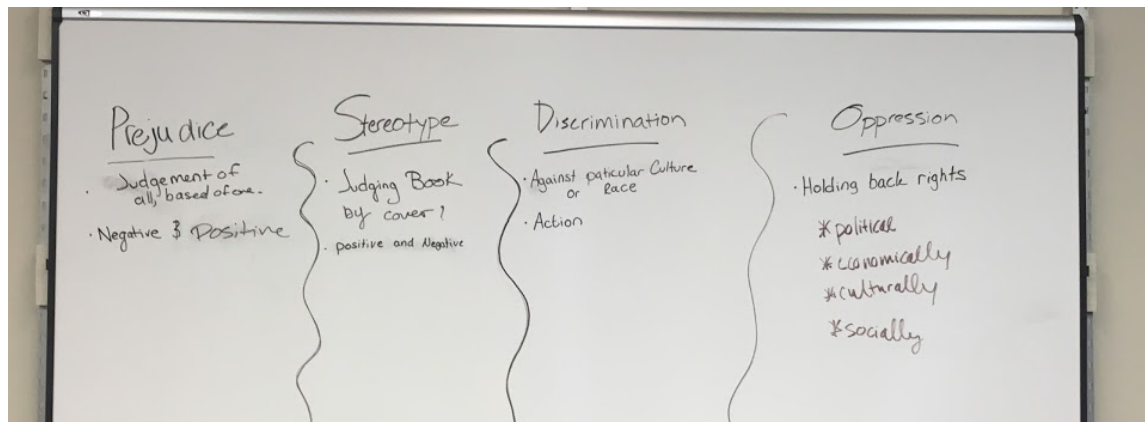 Prejudice
· Judgement of
all, based of one.
· Negative & Positive
Stereotype
· Judging Book
by cover?
· positive and Negative
Discrimination
· Against paticular Culture
or Race
· Action
Oppression
· Holding back rights
* political
* economically
* culturally
* socially